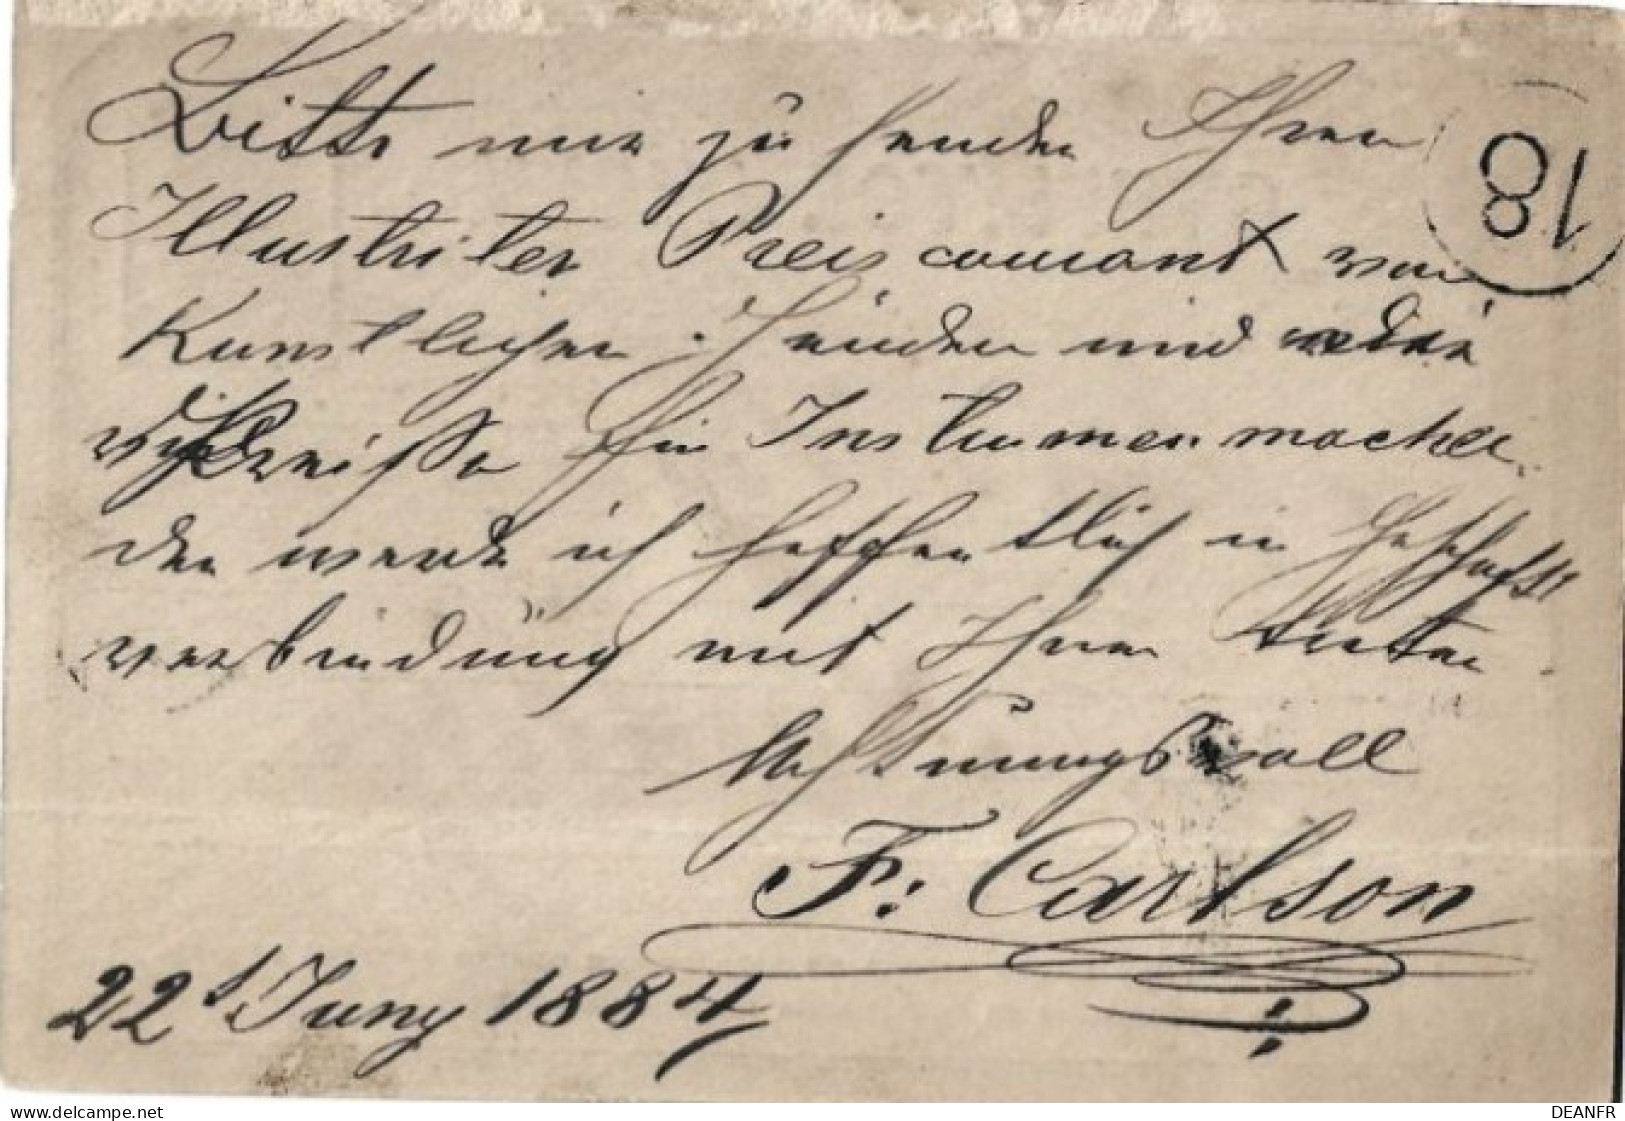 Bitte mir zu senden Ihren
Illustrirter Preis courant von
Kunstlichen Händen und
für Instrumenmacher
den werde ich hoffentlich in Geschäfts
verbindung mit Ihnen
Achtungsvoll
F. Carlson
22 Juny 1884
18
www.delcampe.net
DEANFR